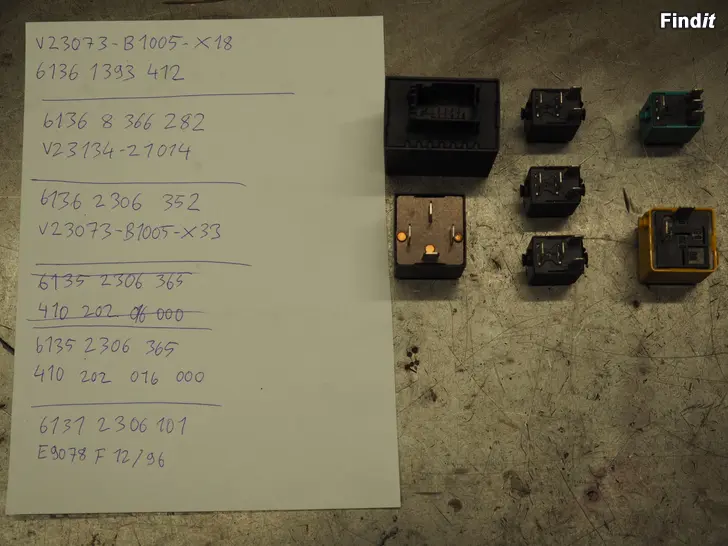 Findit
V23073-B1005-X18
6136 1393 412
6136 8 366 282
V23134-21014
6136 2306 352
V23073-B1005-X33
6135 2306 365
410 202 06 000
6135 2306 365
410 202 016 000
6131 2306 101
E9078 F 12/96